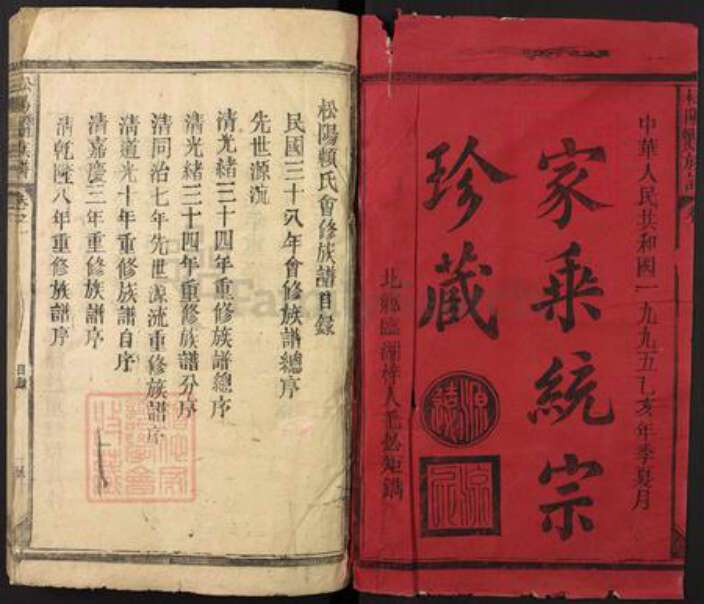 中華人民共和國一九九五乙亥年季夏月
家乘統宗
珍藏
北鄉臨湖梓人毛必矩鐫
松陽賴氏會修族譜目錄
民國三十八年會修族譜總序
先世源流
清光緒三十四年重修族譜總序
清光緒三十四年重修族譜分序
清同治七年先世源流重修族譜序
清道光十年重修族譜自序
清嘉慶三年重修族譜序
清乾隆八年重修族譜序
目錄